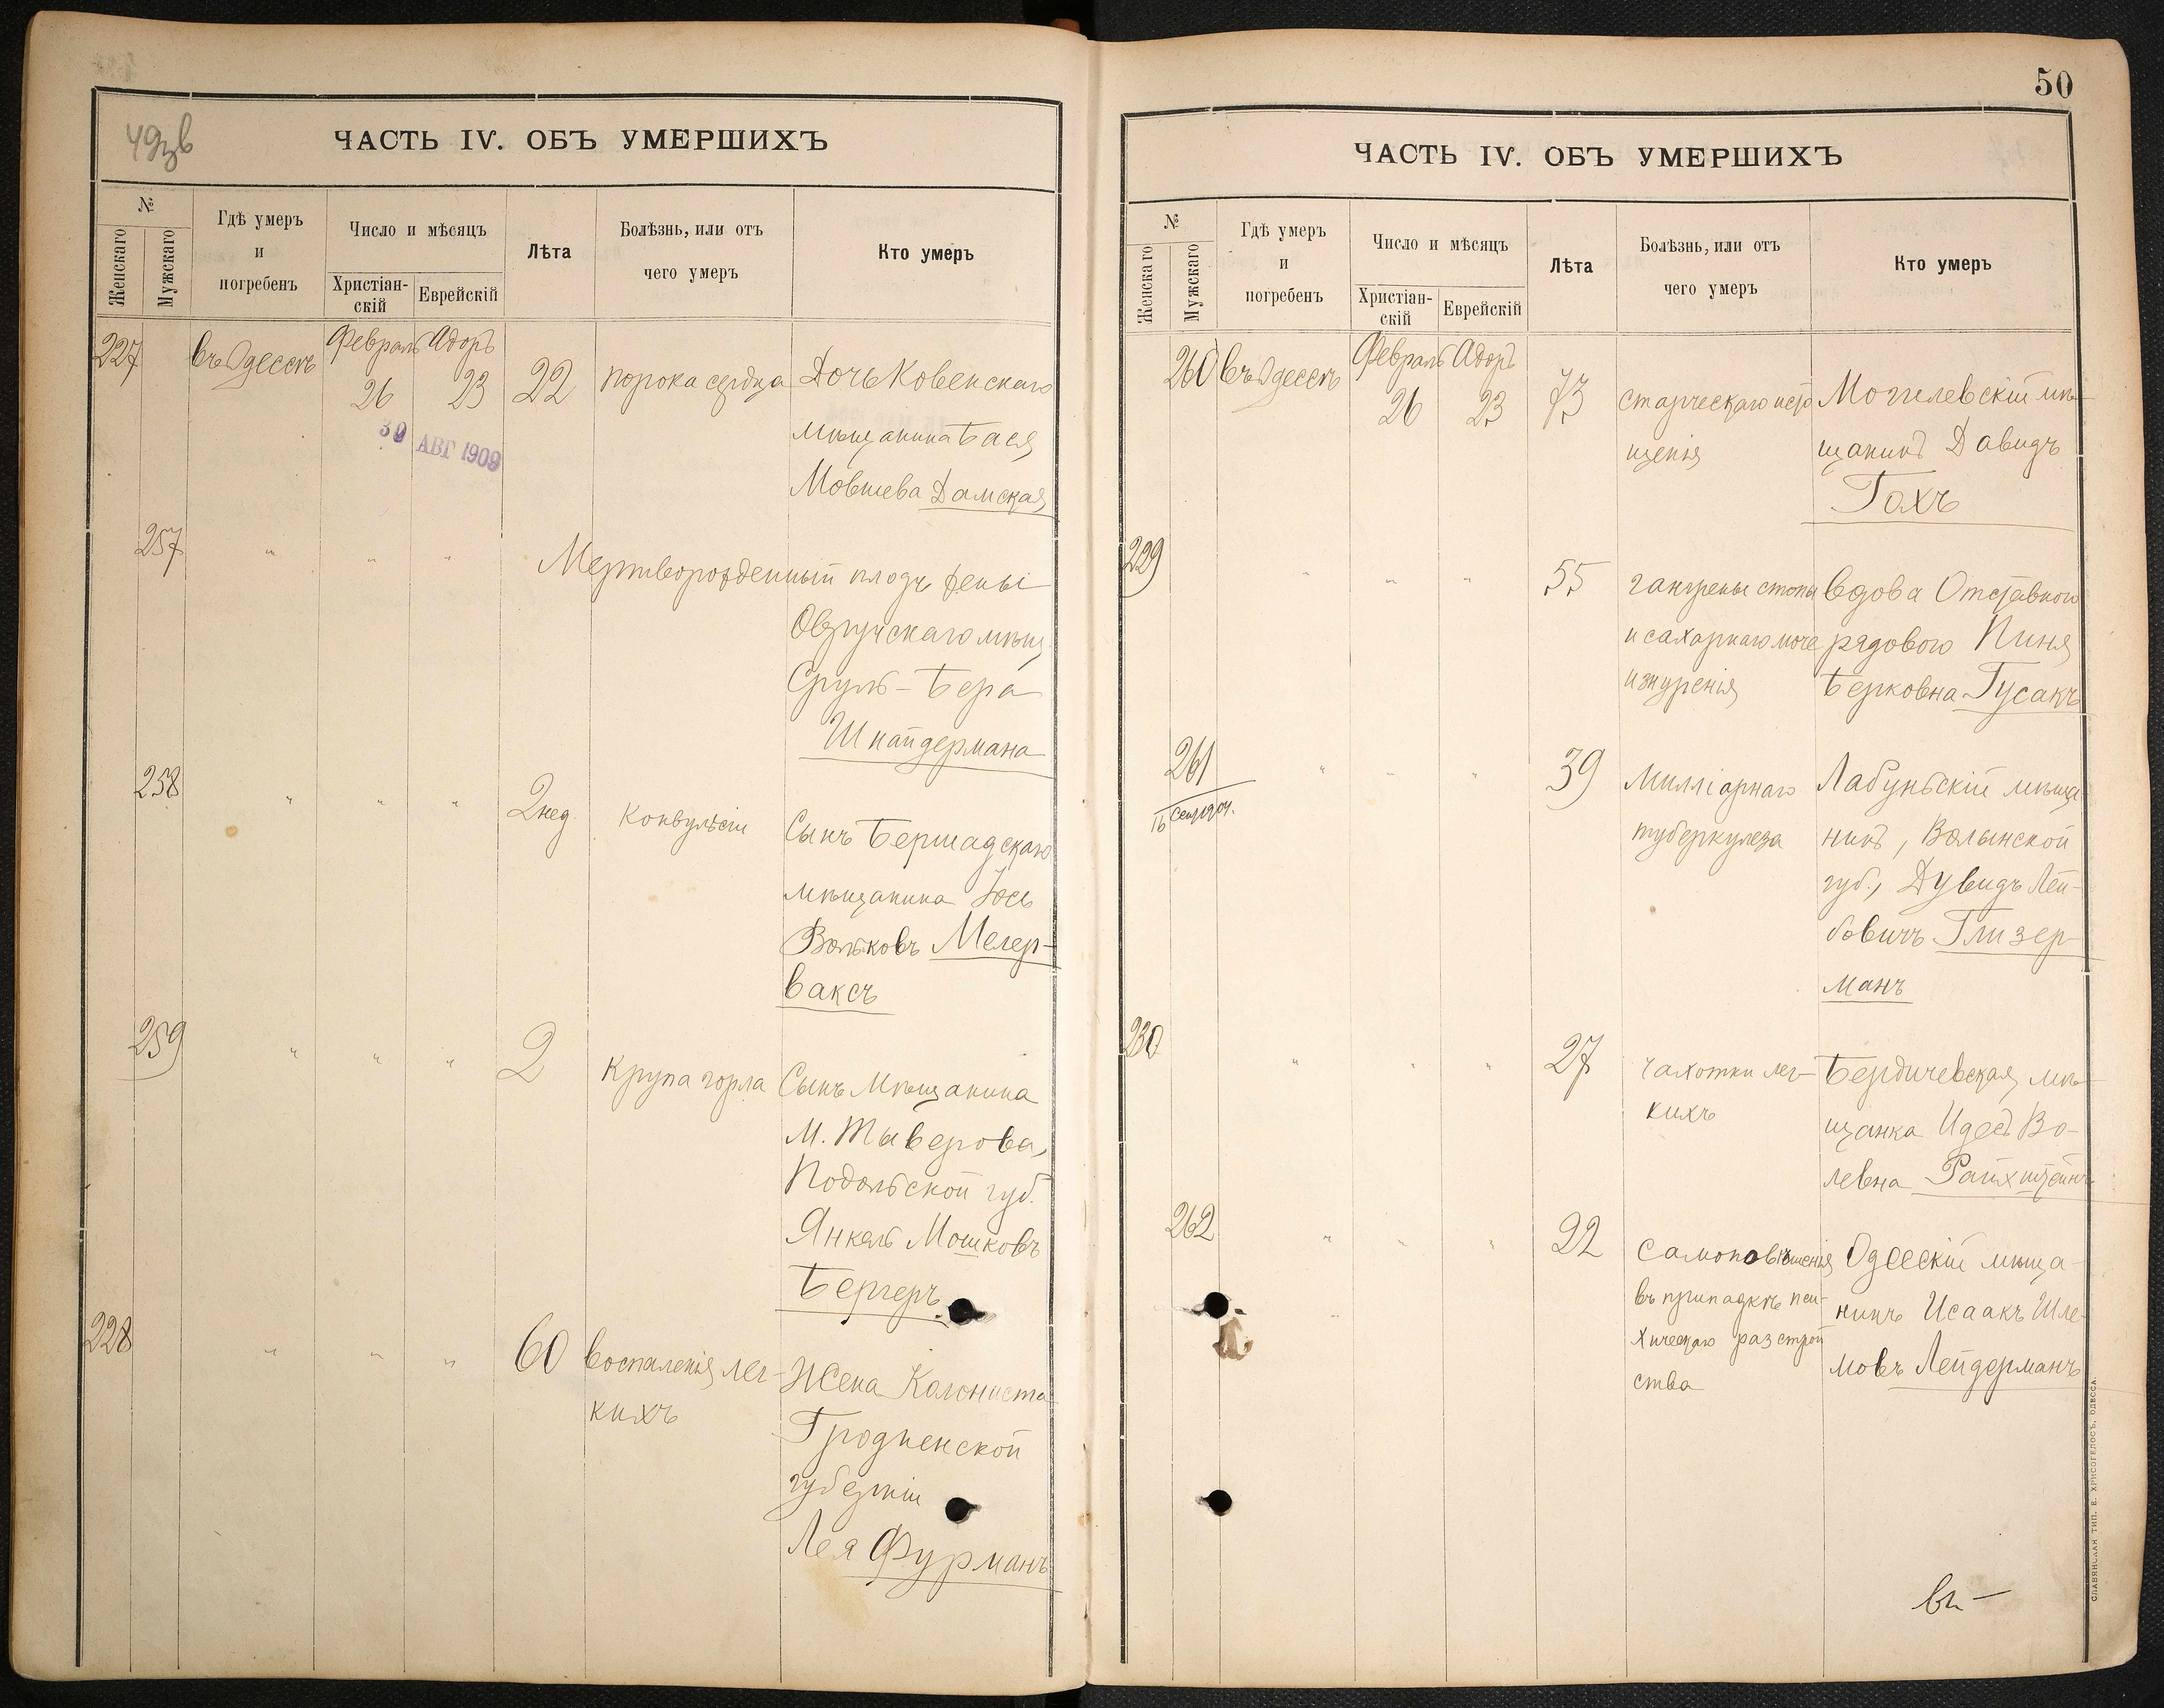 49зв
ЧАСТЬ IV. ОБЪ УМЕРШИХЪ
№
Женскаго
Мужскаго
Гдѣ умеръ
и
погребенъ
Число и мѣсяцъ
Христіан-
скій
Еврейскій
Лѣта
Болѣзнь, или отъ
чего умеръ
Кто умеръ
227
въ Одессѣ
Февраль Адоръ
26 23
22
порока сердца
Дочь Ковенскаго
мѣщанина Бася
Мовшева Дамская
30 АВГ 1909
257
" " "
Мертворожденный плодъ жены
Овручскаго мѣщ.
Сруль-Бера
Шнайдермана
258
" " "
2 нед.
Конвульсіи
Сынъ Бершадскаго
мѣщанина Іось
Вольковъ Мегер-
ваксъ
259
" " "
2
Крупа горла
Сынъ Мѣщанина
М. Тыверова,
Подольской губ.
Янкель Мошковъ
Бергеръ
228
" " "
60
воспаленія лег-
кихъ
Жена Колониста
Гродненской
губерніи
Лея Фурманъ
50
ЧАСТЬ IV. ОБЪ УМЕРШИХЪ
№
Женскаго
Мужскаго
Гдѣ умеръ
и
погребенъ
Число и мѣсяцъ
Христіан-
скій
Еврейскій
Лѣта
Болѣзнь, или отъ
чего умеръ
Кто умеръ
260
въ Одессѣ
Февраль Адоръ
26 23
73
старческаго исто
щенія
Могилевскій мѣ-
щанинъ Давидъ
Гохъ
229
" " "
55
гангрены стопы
и сахарнаго моче
изнуренія
вдова Отставного
рядового Пиня
Берковна Гусакъ
261
" " "
39
Милліарнаго
туберкулеза
Лабуньскій мѣща-
нинъ, Волынской
губ., Дувидъ Лей-
бовичъ Глизер-
манъ
230
" " "
27
чахотки лег-
кихъ
Бердичевская мѣ-
щанка Идесъ Во-
левна Райхштейнъ
262
" " "
22
Самоповѣшенія
въ припадкѣ пси-
хическаго разстрой
ства
Одесскій мѣща-
нинъ Исаакъ Шле-
мовъ Лейдерманъ
СЛАВЯНСКАЯ ТИП. Е. ХРИСОГЕЛОСЪ, ОДЕССА.